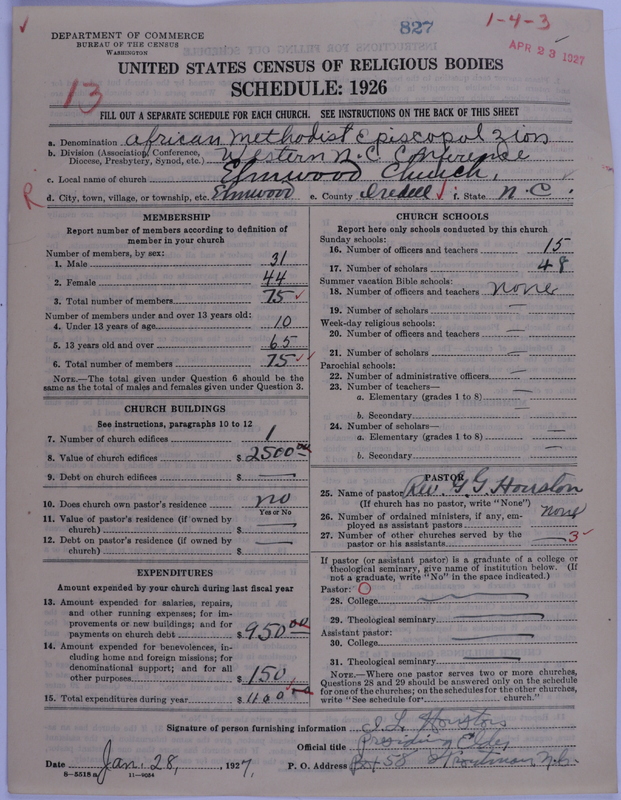 827
1-4-3
APR 23 1927
DEPARTMENT OF COMMERCE
BUREAU OF THE CENSUS
WASHINGTON
UNITED STATES CENSUS OF RELIGIOUS BODIES
13
SCHEDULE: 1926
FILL OUT A SEPARATE SCHEDULE FOR EACH CHURCH. SEE INSTRUCTIONS ON THE BACK OF THIS SHEET
a. Denomination African Methodist Episcopal Zion
b. Division (Association, Conference, Diocese, Presbytery, Synod, etc.) Western N.C. Conference
c. Local name of church Elmwood Church,
R
d. City, town, village, or township, etc. Elmwood e. County Iredell f. State N.C.
MEMBERSHIP
Report number of members according to definition of
member in your church
Number of members, by sex:
1. Male 31
2. Female 44
3. Total number of members 75
Number of members under and over 13 years old:
4. Under 13 years of age 10
5. 13 years old and over 65
6. Total number of members 75
NOTE.—The total given under Question 6 should be
same as the total of males and females given under Question 3.
CHURCH BUILDINGS
See instructions, paragraphs 10 to 12
7. Number of church edifices 1
8. Value of church edifices $ 2500 00
9. Debt on church edifices $ —
10. Does church own pastor's residence no
Yes or No
11. Value of pastor's residence (if owned by
church) $ —
12. Debt on pastor's residence (if owned by
church) $ —
EXPENDITURES
Amount expended by your church during last fiscal year
13. Amount expended for salaries, repairs,
and other running expenses; for im-
provements or new buildings; and for
payments on church debt $ 950 00
14. Amount expended for benevolences, in-
cluding home and foreign missions; for
denominational support; and for all
other purposes $ 150
15. Total expenditures during year $ 1100
CHURCH SCHOOLS
Report here only schools conducted by this church
Sunday schools:
16. Number of officers and teachers 15
17. Number of scholars 48
Summer vacation Bible schools:
18. Number of officers and teachers none
19. Number of scholars —
Week-day religious schools:
20. Number of officers and teachers —
21. Number of scholars —
Parochial schools:
22. Number of administrative officers —
23. Number of teachers—
a. Elementary (grades 1 to 8) —
b. Secondary —
24. Number of scholars—
a. Elementary (grades 1 to 8) —
b. Secondary —
PASTOR
25. Name of pastor Rev. G. G. Houston
(If church has no pastor, write "None")
26. Number of ordained ministers, if any, em-
ployed as assistant pastors none
27. Number of other churches served by the
pastor or his assistants 3
If pastor (or assistant pastor) is a graduate of a college or
theological seminary, give name of institution below. (If
not a graduate, write "No" in the space indicated.)
Pastor:
28. College —
29. Theological seminary —
Assistant pastor:
30. College —
31. Theological seminary —
NOTE.—Where one pastor serves two or more churches,
Questions 28 and 29 should be answered only on the schedule
for one of the churches; on the schedules for the other churches,
write "See schedule for church."
Signature of person furnishing information Houston
Official title Presiding Elder
Date Jan. 28, 1927. P. O. Address Box 58 Troutman, N.C.
8—5518 a 11—9034